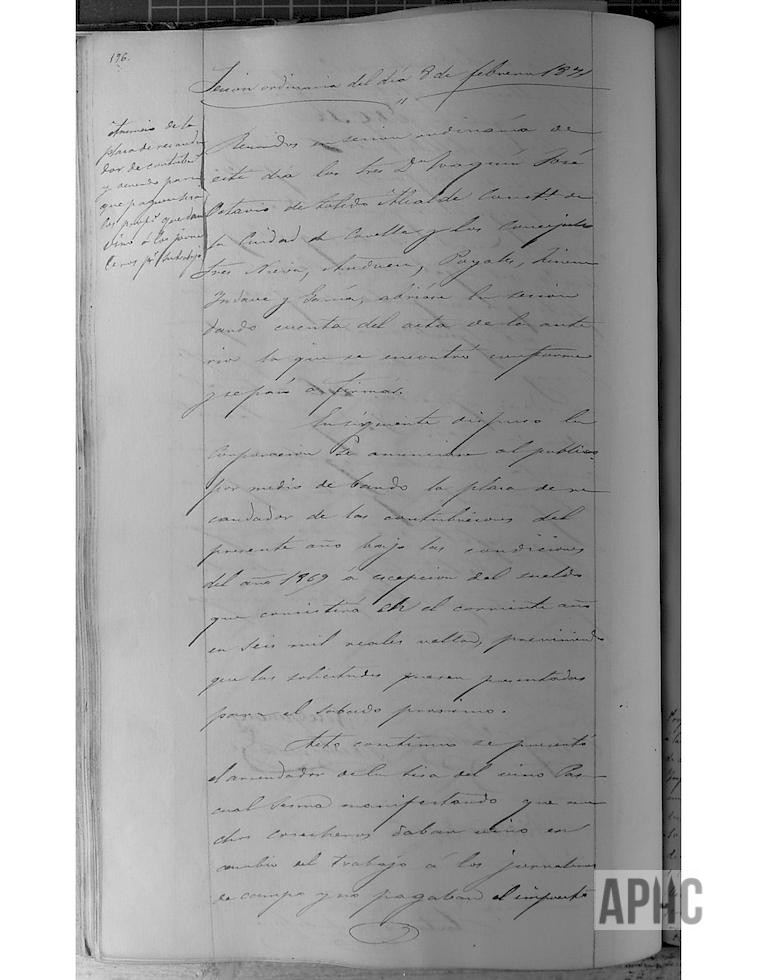 196.
Sesion ordinaria del dia 8 de febrero 1871
Anuncio de la
plaza de recauda
dor de contribs
y acuerdo para
que paguen
los que dan
vino á los jorna
leros pr su trabajo
Reunidos en sesion ordinaria de
este dia los Sres Dn Joaquin José
Octavio de Toledo Alcalde Constl de
la Ciudad de Corella y los Concejales
Sres Nieva, Andueza, Poyales,
y Garcia, abriose la sesion
dando cuenta del acta de la ante
rior la que se encontró conforme
y se pasó á firmar.
Enseguida dispuso la
Corporacion se anunciara al publico
por medio de bando la plaza de re
caudador de las contribuciones del
presente año bajo las condiciones
del año 1869 á escepcion del sueldo
que consistirá en el corriente año
en seis mil reales vellon, previniendo
que las solicitudes fuesen presentadas
para el sabado procsimo.
Acto continuo se presentó
el arrendador de la sisa del vino Pas-
cual Sesma manifestando que mu
chos cosecheros daban vino en
cambio del trabajo á los jornaleros
de campo y no pagaban el impuesto
APHC